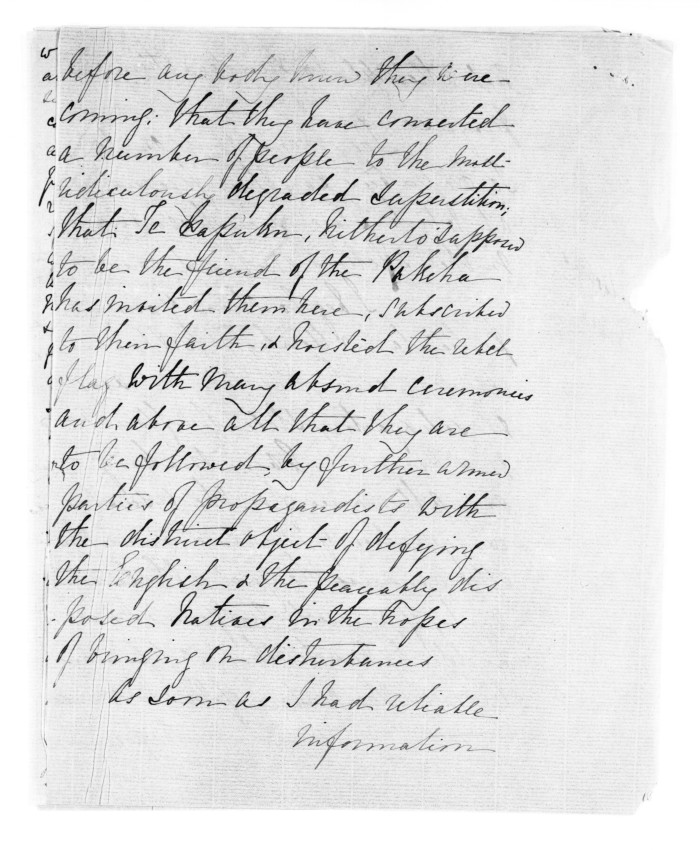 before any body knew they were
coming: that they have converted
a number of people to the most
ridiculously degraded superstition;
that Te Hapuku, hitherto supposed
to be the friend of the Pakeha
has invited them here, subscribed
to their faith, & hoisted the rebel
flag with many absurd ceremonies
and above all that they are
to be followed by further armed
parties of propagandists with
the distinct object of defying
the English & the peaceably dis
posed Natives in the hopes
of bringing on disturbances
As soon as I had reliable
information